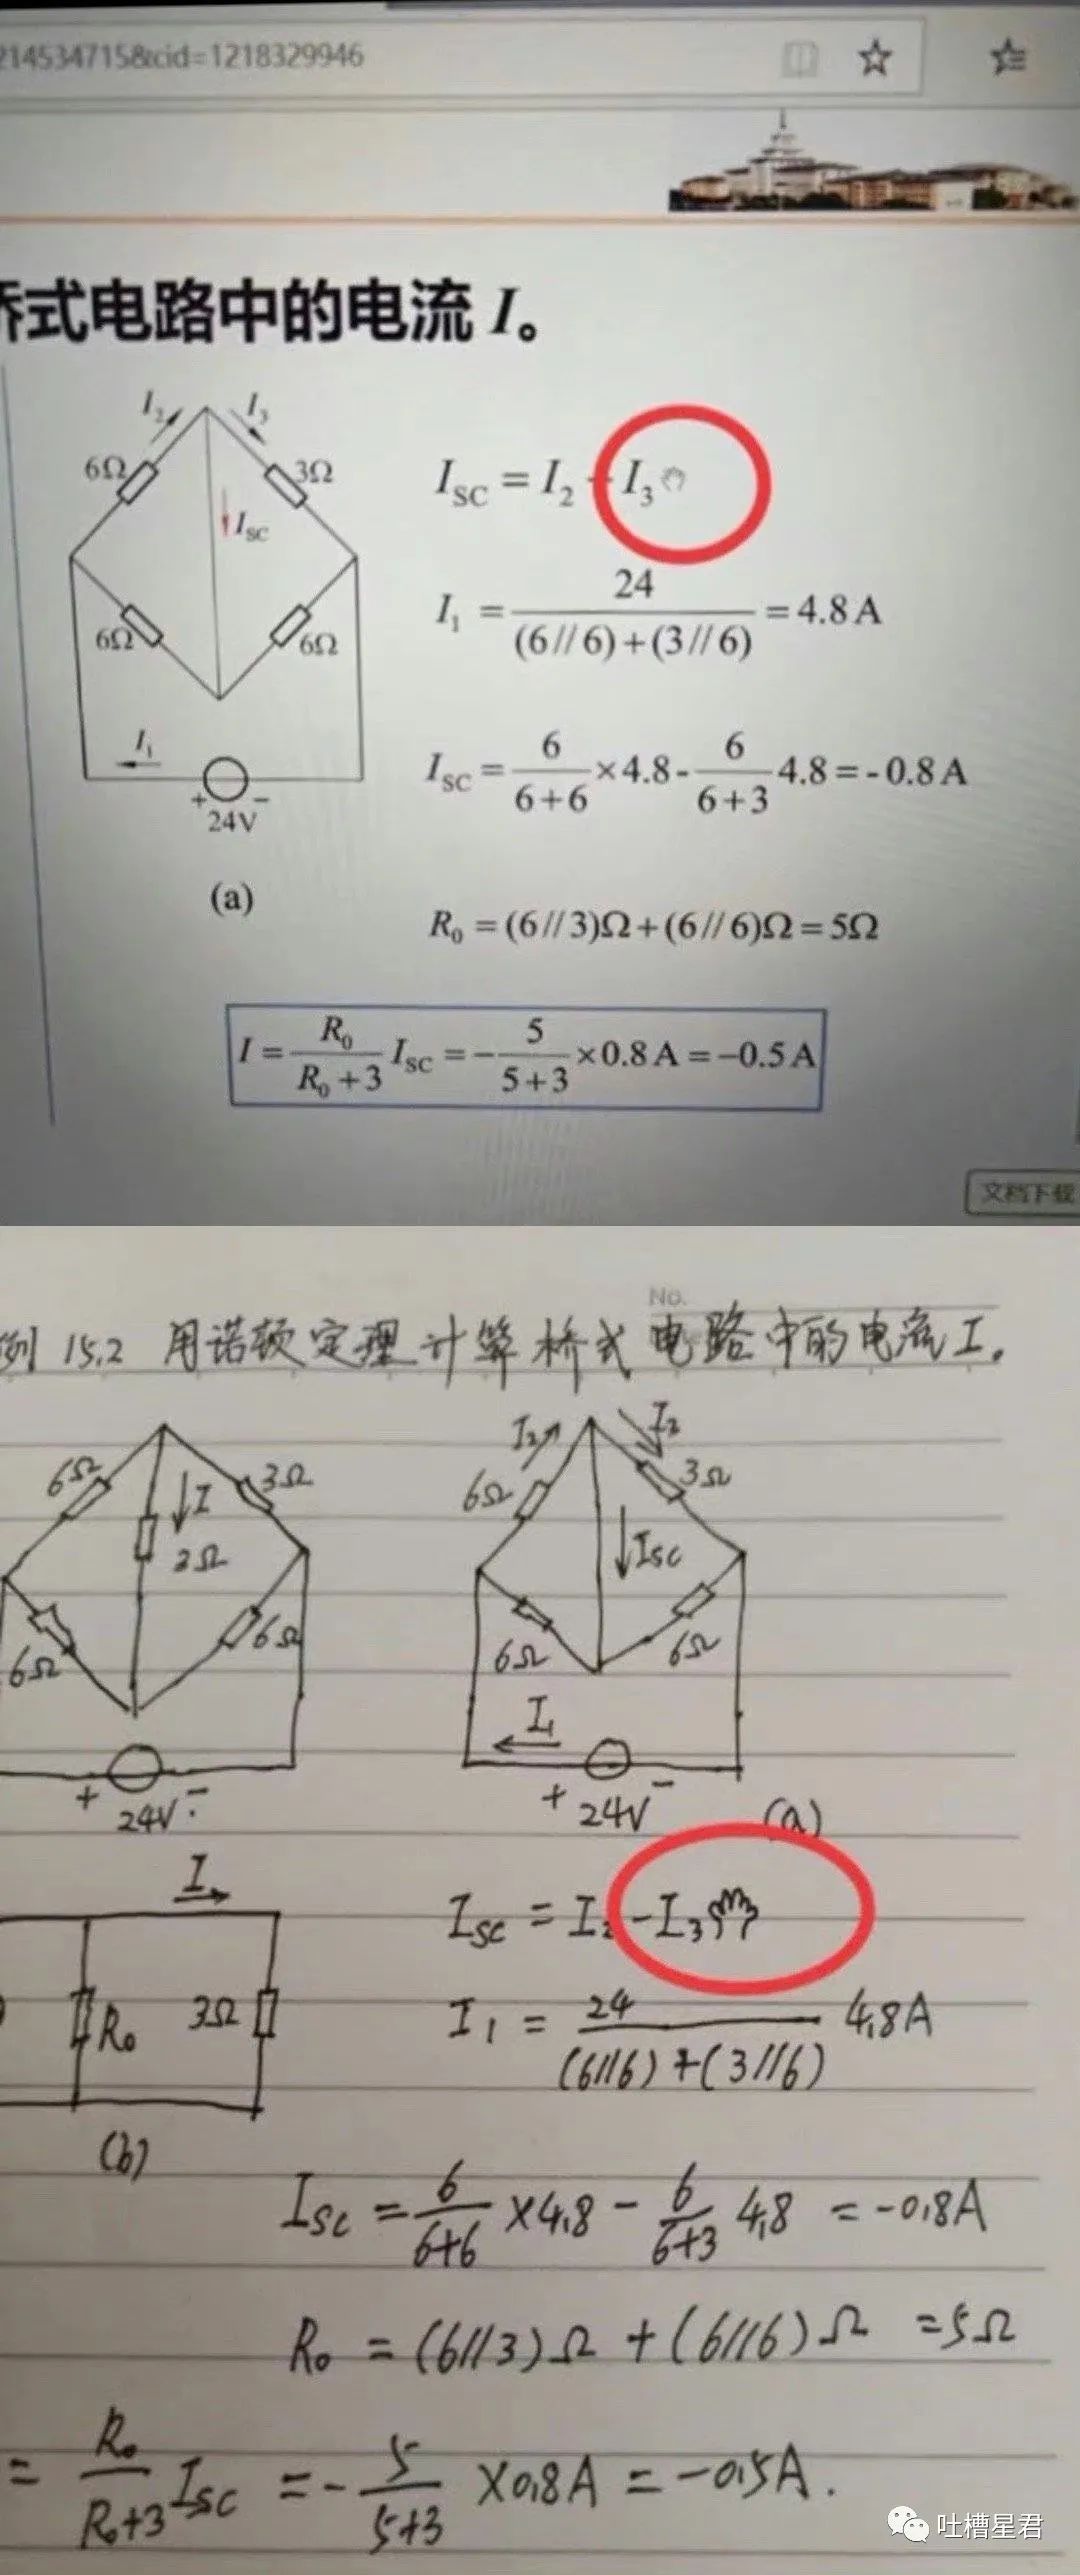 214534715&cid=1218329946
桥式电路中的电流 I。
I₂
I₃
6Ω
3Ω
I_SC
6Ω
6Ω
I₁
+ −
24V
(a)
I_SC = I₂ - I₃
I₁ = 24/((6//6)+(3//6)) = 4.8 A
I_SC = 6/(6+6) ×4.8 - 6/(6+3) 4.8 = -0.8 A
R₀ = (6//3)Ω+(6//6)Ω = 5Ω
I = R₀/(R₀+3) I_SC = -5/(5+3) ×0.8 A = -0.5 A
文档下载
No.
例 15.2 用诺顿定理计算桥式电路中的电流 I。
6Ω
3Ω
I
3Ω
6Ω
6Ω
+ −
24V
I₂
I₂
6Ω
3Ω
Isc
6Ω
6Ω
I₁
+ −
24V
(a)
I
R₀
3Ω
(b)
Isc = I₂ - I₃
I₁ = 24/((6//6)+(3//6)) 4.8A
Isc = 6/(6+6) ×4.8 - 6/(6+3) 4.8 = -0.8A
R₀ = (6//3)Ω + (6//6)Ω = 5Ω
= R₀/(R₀+3) Isc = -5/(5+3) ×0.8A = -0.5A.
吐槽星君